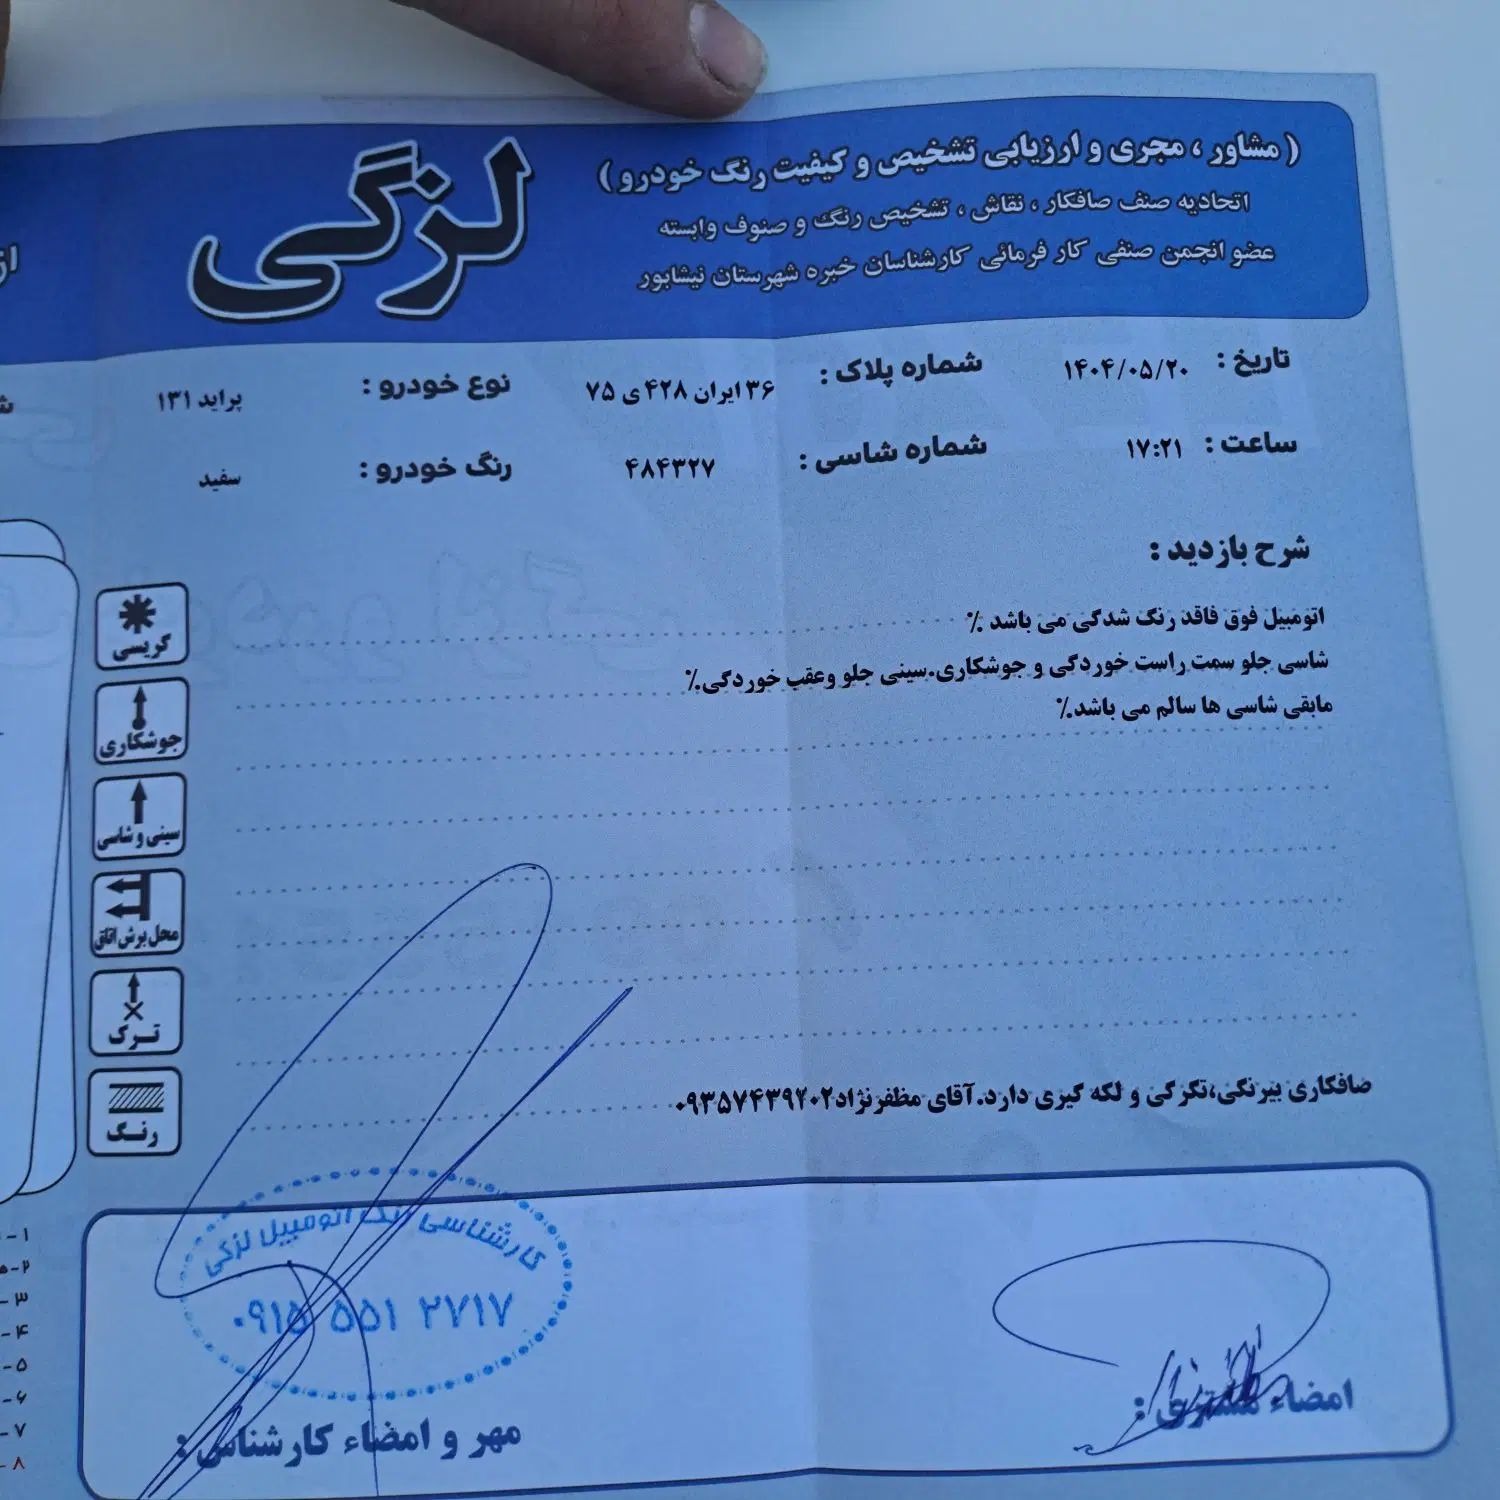 لزگی
( مشاور ، مجری و ارزیابی تشخیص و کیفیت رنگ خودرو )
اتحادیه صنف صافکار ، نقاش ، تشخیص رنگ و صنوف وابسته
عضو انجمن صنفی کار فرمائی کارشناسان خبره شهرستان نیشابور
تاریخ : ۱۴۰۴/۰۵/۲۰ شماره پلاک : ۳۶ ایران ۴۲۸ ی ۷۵ نوع خودرو : پراید ۱۳۱
ساعت : ۱۷:۲۱ شماره شاسی : ۴۸۴۳۲۷ رنگ خودرو : سفید
شرح بازدید :
اتومبیل فوق فاقد رنگ شدگی می باشد ٪
شاسی جلو سمت راست خوردگی و جوشکاری.سینی جلو وعقب خوردگی.٪
مابقی شاسی ها سالم می باشد.٪
گریسی
جوشکاری
سینی و شاسی
محل برش اتاق
ترک
رنگ
صافکاری بیرنگی،تگرگی و لکه گیری دارد.آقای مظفرنژاد۰۹۳۵۷۴۳۹۲۰۲
کارشناسی رنگ اتومبیل لزگی
۰۹۱۵ ۵۵۱ ۲۷۱۷
امضاء مشتری :
مهر و امضاء کارشناس :
۱-
۲-
۳-
۴-
۵-
۶-
۷-
۸-